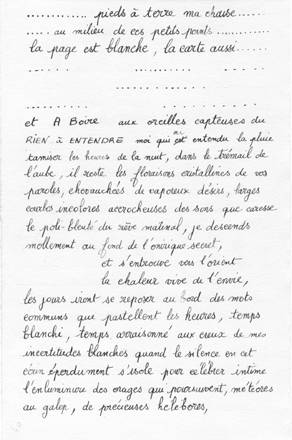 ............. pieds à terre ma chaise .....
..... au milieu de ces petits points .......
la page est blanche, la carte aussi .....
............. ............ ......
...... . . . .......
et A Boire aux oreilles capteuses du
RIEN à ENTENDRE moi qui ai entendu la pluie
tamiser les heures de la nuit, dans le trémail de
l'aube, il reste les floraisons cristallines de vos
paroles, chevauchées de vaporeux désirs, larges
courbes incolores accrocheuses des sons que caresse
le poli-bleuté du rêve matinal, je descends
mollement au fond de l'onirique secret,
et s'entrouve vers l'orient
la chaleur vive de l'envie,
les jours iront se reposer au bord des mots
communs que pastellent les heures, temps
blanchi, temps arraisonné aux creux de mes
incertitudes blanches quand le silence en cet
écrin éperdument s'isole pour célébrer intime
l'enluminure des orages qui poursuivent, météores
au galop, de précieuses hélébores,